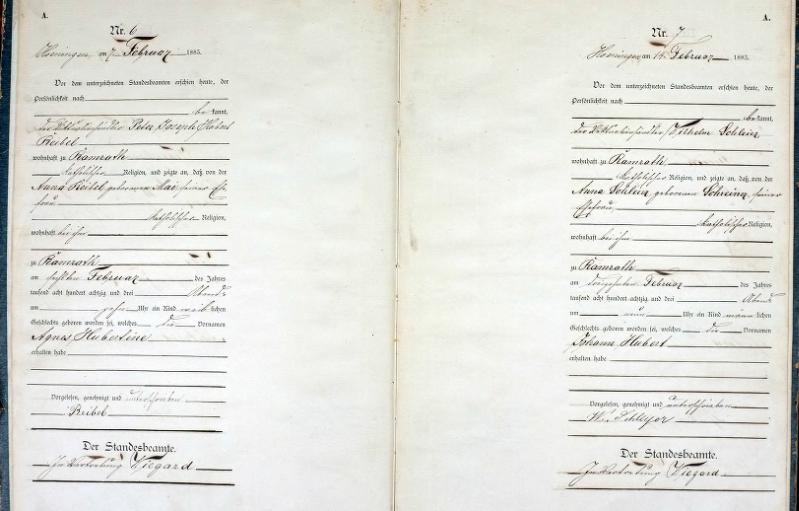 A.
Nr. 6
Hoeningen, am 7. Februar 1883.
Vor dem unterzeichneten Standesbeamten erschien heute, der
Persönlichkeit nach
be kannt,
der Peter Joseph Hubert
Reibel
wohnhaft zu Ramrath
katholischer Religion, und zeigte an, daß von der
Anna Reibel geborenen Mai, seiner Ehe
frau
katholischer Religion,
wohnhaft bei ihm
zu Ramrath
am sechsten Februar des Jahres
tausend acht hundert achtzig und drei Abends
um zehn Uhr ein Kind weib lichen
Geschlechts geboren worden sei, welches die Vornamen
Agnes Hubertine
erhalten habe
Vorgelesen, genehmigt und unterschrieben
Reibel
Der Standesbeamte.
In Vertretung Wiegard
A.
Nr. 7
Hoeningen, am 14. Februar 1883.
Vor dem unterzeichneten Standesbeamten erschien heute, der
Persönlichkeit nach
be kannt,
der Wilhelm
wohnhaft zu Ramrath
katholischer Religion, und zeigte an, daß von der
Anna geborenen seiner
Ehefrau,
katholischer Religion,
wohnhaft bei ihm
zu Ramrath
am dreizehnten Februar des Jahres
tausend acht hundert achtzig und drei Abends
um neun Uhr ein Kind männ lichen
Geschlechts geboren worden sei, welches die Vornamen
Johann Hubert
erhalten habe
Vorgelesen, genehmigt und unterschrieben
W.
Der Standesbeamte.
In Vertretung Wiegard